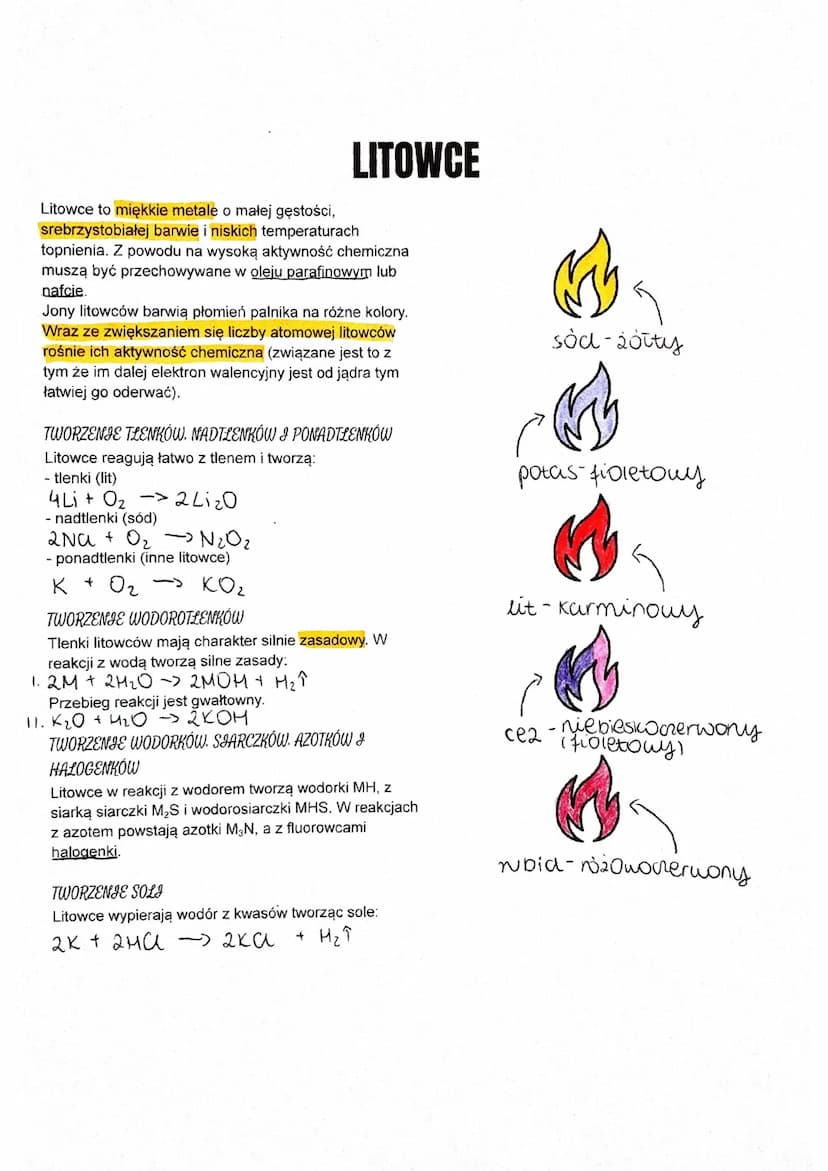 LITOWCE
Litowce to miękkie metale o małej gęstości,
srebrzystobiałej barwie i niskich temperaturach
topnienia. Z powodu na wysoką aktywność chemiczna
muszą być przechowywane w oleju parafinowym lub
nafcie.
Jony litowców barwią płomień palnika na różne kolory.
Wraz ze zwiększaniem się liczby atomowej litowców
rośnie ich aktywność chemiczna (związane jest to z
tym że im dalej elektron walencyjny jest od jądra tym
łatwiej go oderwać).
TWORZENIE TLENKÓW, NADTLENKÓW I PONADTLENKÓW
Litowce reagują łatwo z tlenem i tworzą:
- tlenki (lit)
4Li + O₂ -> 2Li₂O
- nadtlenki (sód)
2Na + O₂ -> N₂O₂
- ponadtlenki (inne litowce)
K + O₂ -> KO₂
TWORZENIE WODOROTLENKÓW
Tlenki litowców mają charakter silnie zasadowy. W
reakcji z wodą tworzą silne zasady:
I. 2M + 2H₂O -> 2MOH + H₂↑
Przebieg reakcji jest gwałtowny.
II. K₂O + H₂O -> 2KOH
TWORZENIE WODORKÓW, SIARCZKÓW, AZOTKÓW I
HALOGENKÓW
Litowce w reakcji z wodorem tworzą wodorki MH, z
siarką siarczki M₂S i wodorosiarczki MHS. W reakcjach
z azotem powstają azotki M₃N, a z fluorowcami
halogenki.
TWORZENIE SOLI
Litowce wypierają wodór z kwasów tworząc sole:
2K + 2HCl -> 2KCl + H₂↑
sód - żółty
potas - fioletowy
lit - karminowy
cez - niebieskoczerwony
(fioletowy)
rubid - różowoczerwony